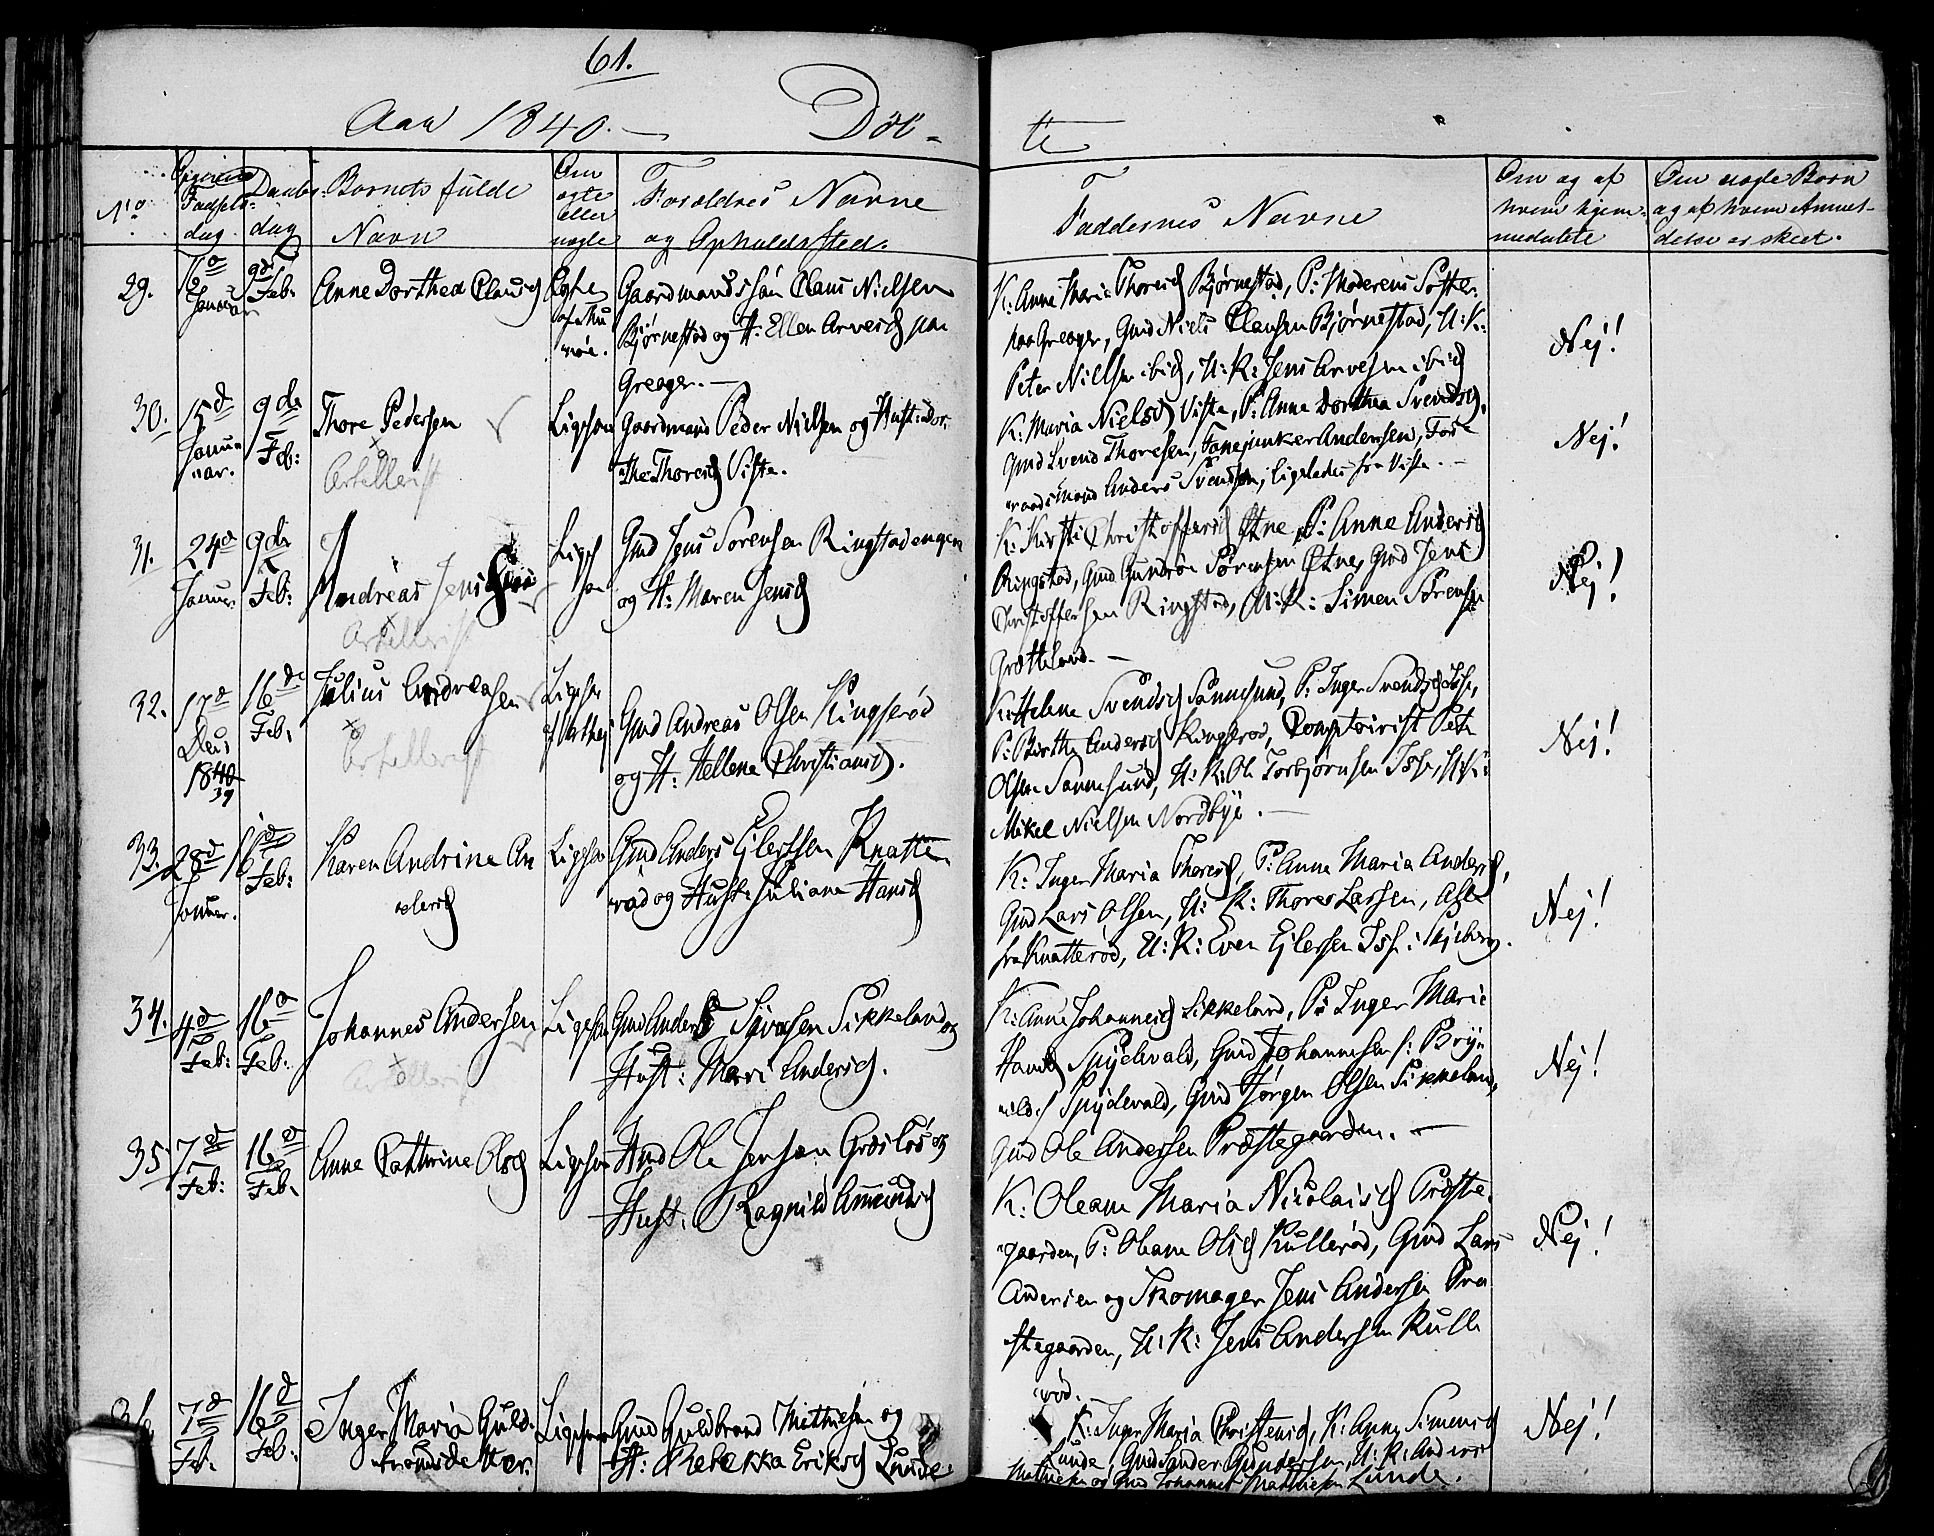 61.
Aar 1840. Döb-
te
No
Födsels-
dag
Daabs-
dag
Barnets fulde
Navn
Om
ægte
eller
uægte
Forældres Navne
og Opholdssted.
Faddernes Navne
Om og af
hvem hjem-
medøbte
Om uægte Børn
og af hvem Anmel-
delse er skeet.
29.
16d
Januar
9d
Feb:
Anne Dorthea Clausd
Gaardmandssøn Claus Nielsen
Bjørnestad og H: Ellen Arvesd paa
Greager. —
K: Anne Marie Thoresd Bjørnestad, P: Moderens Søster
paa Greager, Gmd Niels Clausen Bjørnestad, U: K:
Peter Nielsen ibid, U: K: Jens Arvesen ibid
Nej!
30.
15d
Janu-
ar.
9de
Feb:
Thore Pedersen
Artellerist
Ligesaa
Gaardmand Peder Nielsen og Hust: Dor-
the Thoresd Viste.
K: Maria Nielsd Viste, P: Anne Dorthea Svendsd,
Gmd Svend Thoresen, Fanejunker Andersen, For-
raadsmand Anders Svendsen, ligeledes fra Viste. —
Nej!
31.
24d
Januar
9de
Feb:
Andreas Jensen
Artellerist
Lige-
saa
Gmd Jens Sørensen Ringstadengen
og H: Maren Jensd
K: Kirsti Christoffersd Etne, P: Anne Andersd
Ringstad, Gmd Gundro Sørensen Etne, Gmd Jens
Christoffersen Ringstad, U: K: Simen Sørensen
Grætteland. —
Nej!
32.
17d
Des
1840
39
16de
Feb:
Julius Andreasen
Artellerist
Ligesaa
Gmd Andreas Olsen Kingserød
og H: Hellene Christiansd.
K: Helene Svendsd Sannesund, P: Inger Svendsd Ise,
P: Birthe Andersd Kingserød, Comptoirist Peter
Olsen Sannesund, U: K: Ole Torbjørnsen Ise, U: K:
Mikel Nielsen Nordbye. —
Nej!
33.
28d
Januar.
16d
Feb:
Karen Andrine An
dersd
Ligesaa
Gmd Anders Ejlertsen Knatte-
rød og Hust: Juliane Hansd
K: Inger Maria Thoresd, P: Anne Maria Andersd,
Gmd Lars Olsen, U: K: Thores Larsen, Alle
fra Knatterød, U: K: Even Ejlersen Ise i Skjeberg.
Nej!
34.
4d
Feb:
16d
Feb.
Johannes Andersen
Artelleri
Ligesaa
Gmd Anders Syversen Sikkeland og
Hust: Mari Andersd.
K: Anne Johannesd Sikkeland, P: Inger Marie
Hansd Spydevald, Gmd Johannesen f: Bryn-
nildsd Spydevald, Gmd Jørgen Olsen Sikkeland,
Gmd Ole Andersen Præstegaarden. —
Nej!
35
7d
Feb:
16d
Feb.
Anne Cathrine Olsd
Ligesaa
Hmd Ole Jensen Græslös og
Hust: Ragnild Amundsd
K: Oleane Maria Nicolaisd Præste-
gaarden, P: Oleane Olsd Kullerød, Gmd Lars
Andersen og Skomager Jens Andersen Præ-
stegaarden, U: K: Jens Andersen Kulle-
rød.
Nej!
36
7d
Fe.
16d
Feb:
Inger Maria Guld-
brandsdatter.
Ligesaa
Gmd Guldbrand Mathiesen og
H: Rebekka Eriksd Lunde.
K: Inger Maria Christensd, K: Anne Simensd
Lunde, Gmd Sander Gundersen, U: K: Anders
Mathiesen og Gmd Johannes Mathiesen Lunde.
Nej!